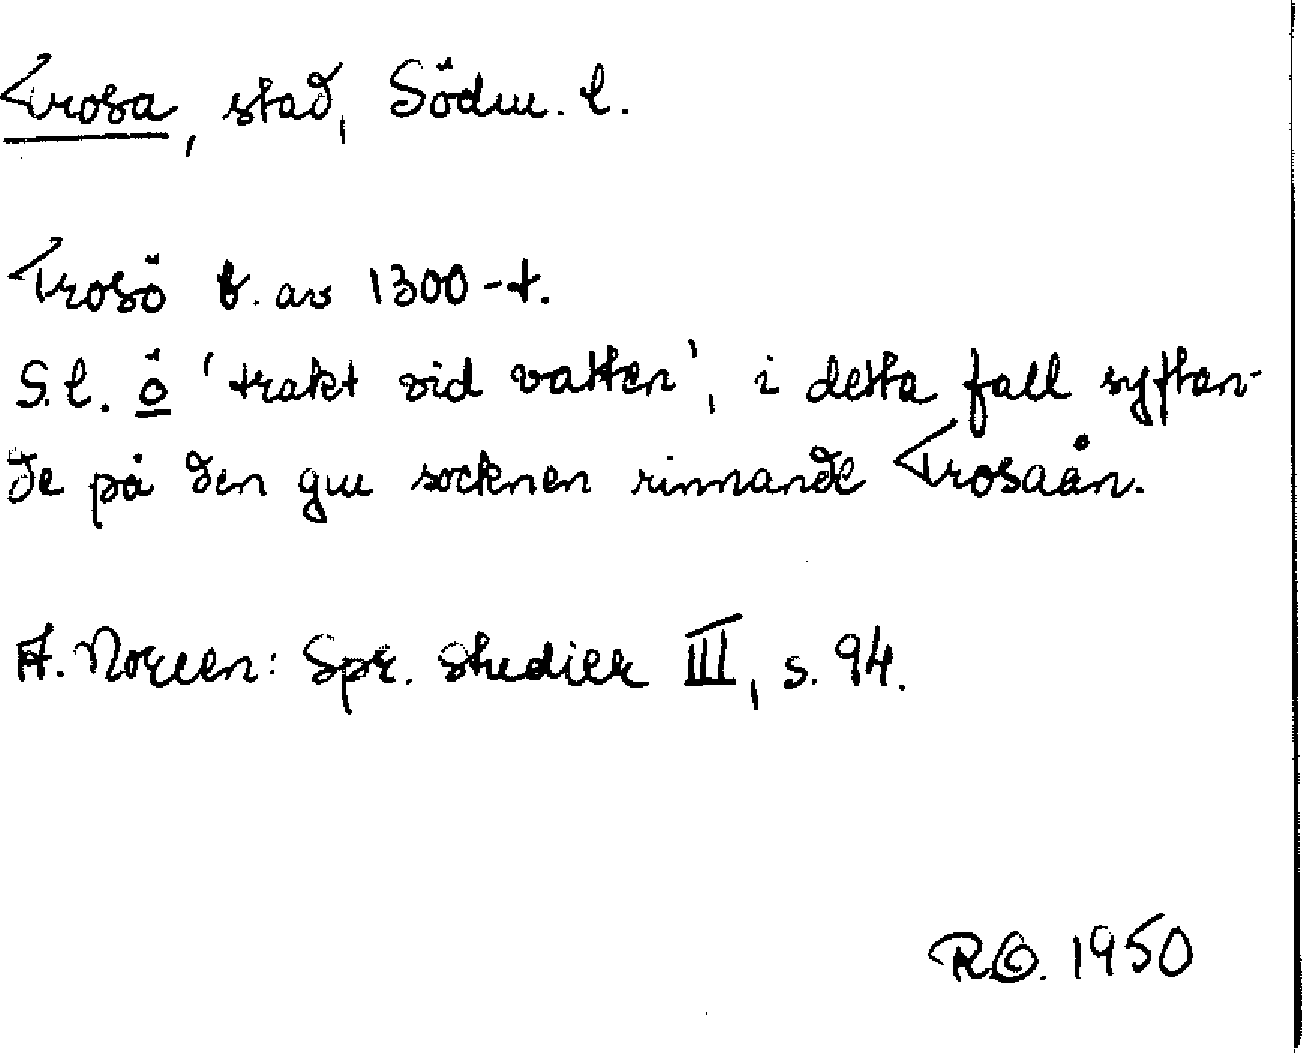 Trosa, stad, Södm. l.
Trosö b. av 1300-t.
S.l. ö 'trakt vid vatten', i detta fall syftan-
de på den gm socknen rinnande Trosaån.
A. Noreen: Spr. studier III, s. 94.
1950